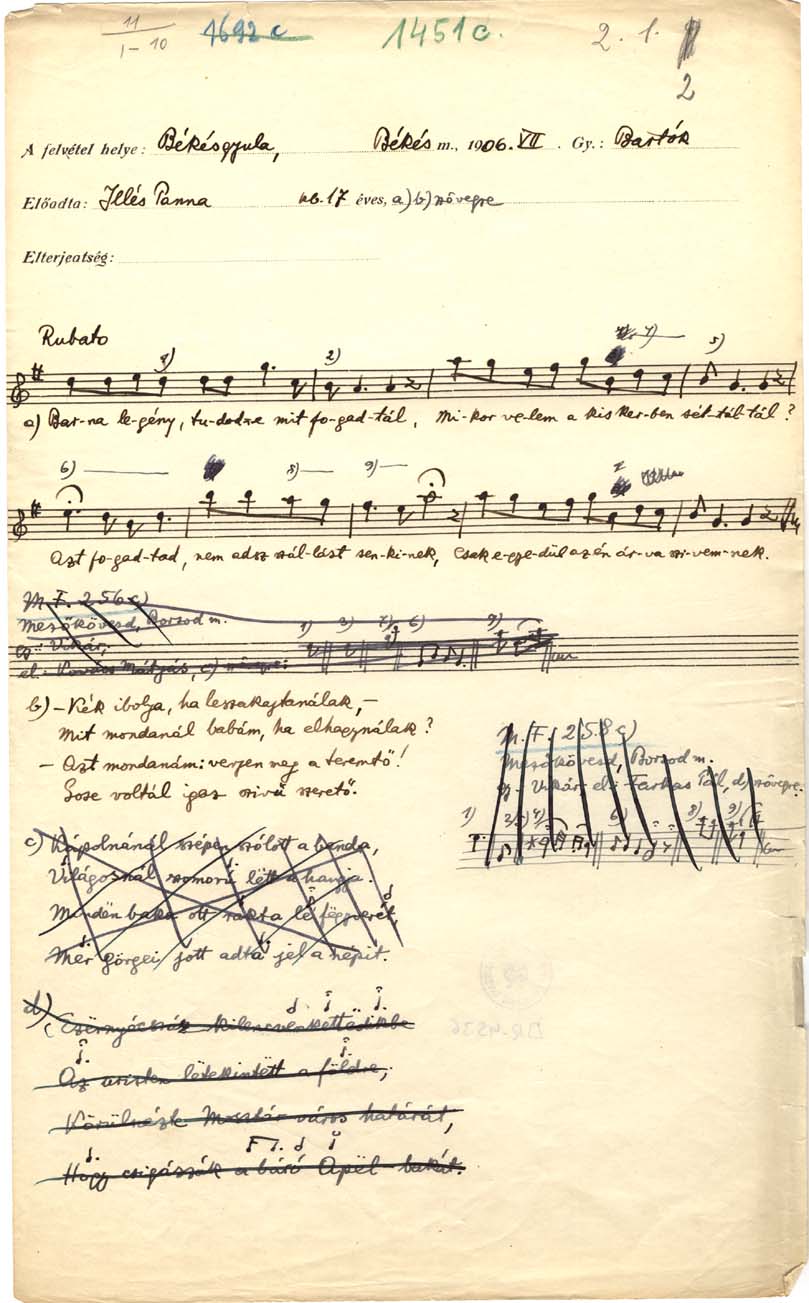 11
1–10
1692 c
1451 c.
2. 1.
2
A felvétel helye: Békésgyula, Békés m., 1906. VII. Gy.: Bartók
Előadta: Illés Panna kb. 17 éves, a) b) szövegre
Elterjedtség:
Rubato
a) Bar-na le-gény, tu-dod-e mit fo-gad-tál, Mi-kor ve-lem a kis ker-ben sét-tál-tál?
6) 8) 9)
Azt fo-gad-tad, nem adsz szál-lást sen-ki-nek, Csak e-gye-dül az én ár-va szi-vem-nek.
M. F. 256 c)
Mezőkövesd, Borsod m.
gy: Vikár,
el. Kovács Mátyás, c)
b) – Kék ibolya, ha leszakajtanálak, –
Mit mondanál babám, ha elhagynálak?
– Azt mondanám: verjen meg a teremtő!
Sose voltál igaz szivü szerető.
M. F. 258 c)
Mezőkövesd, Borsod m.
gy. Vikár, el: Farkas Pál, d) szövegre.
c) Kápolnánál szépen szólott a banda,
Világosnál szomorú lëtt a hangja.
Mindën baka ott rakta le fëgyverét,
Mer görgei jött adta jel a népit.
d)
Az uristen letekintëtt a földre,
Körülnézte Mostár város határát,
Hogy csigázzák a báró Apël-bakát.